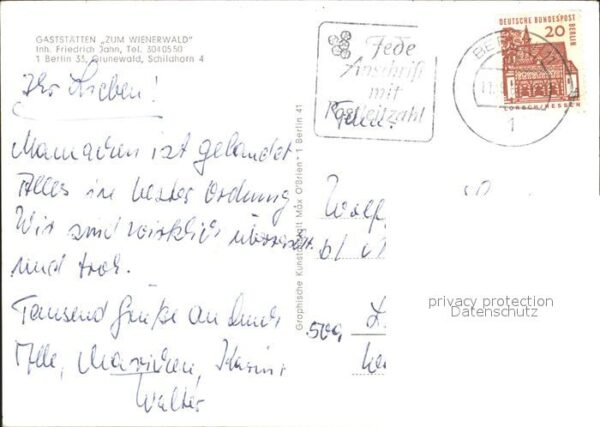 GASTSTÄTTEN „ZUM WIENERWALD"
Inh. Friedrich Jahn, Tel. 3040550
1 Berlin 33, Grunewald, Schildhorn 4
Ihr Lieben!
Mamachen ist gelandet
Alles in bester Ordnung
Wir sind wirklich
und froh.
Tausend Grüße an Euch
Alle, Mamachen,
Walter
Graphische Kunstanstalt Max O'Brien * 1 Berlin 41
Jede
Anschrift
mit
Postleitzahl
Fam.
BERLIN
1
DEUTSCHE BUNDESPOST
BERLIN
20
LORSCH/HESSEN
Wolf
b/
509
privacy protection
Datenschutz